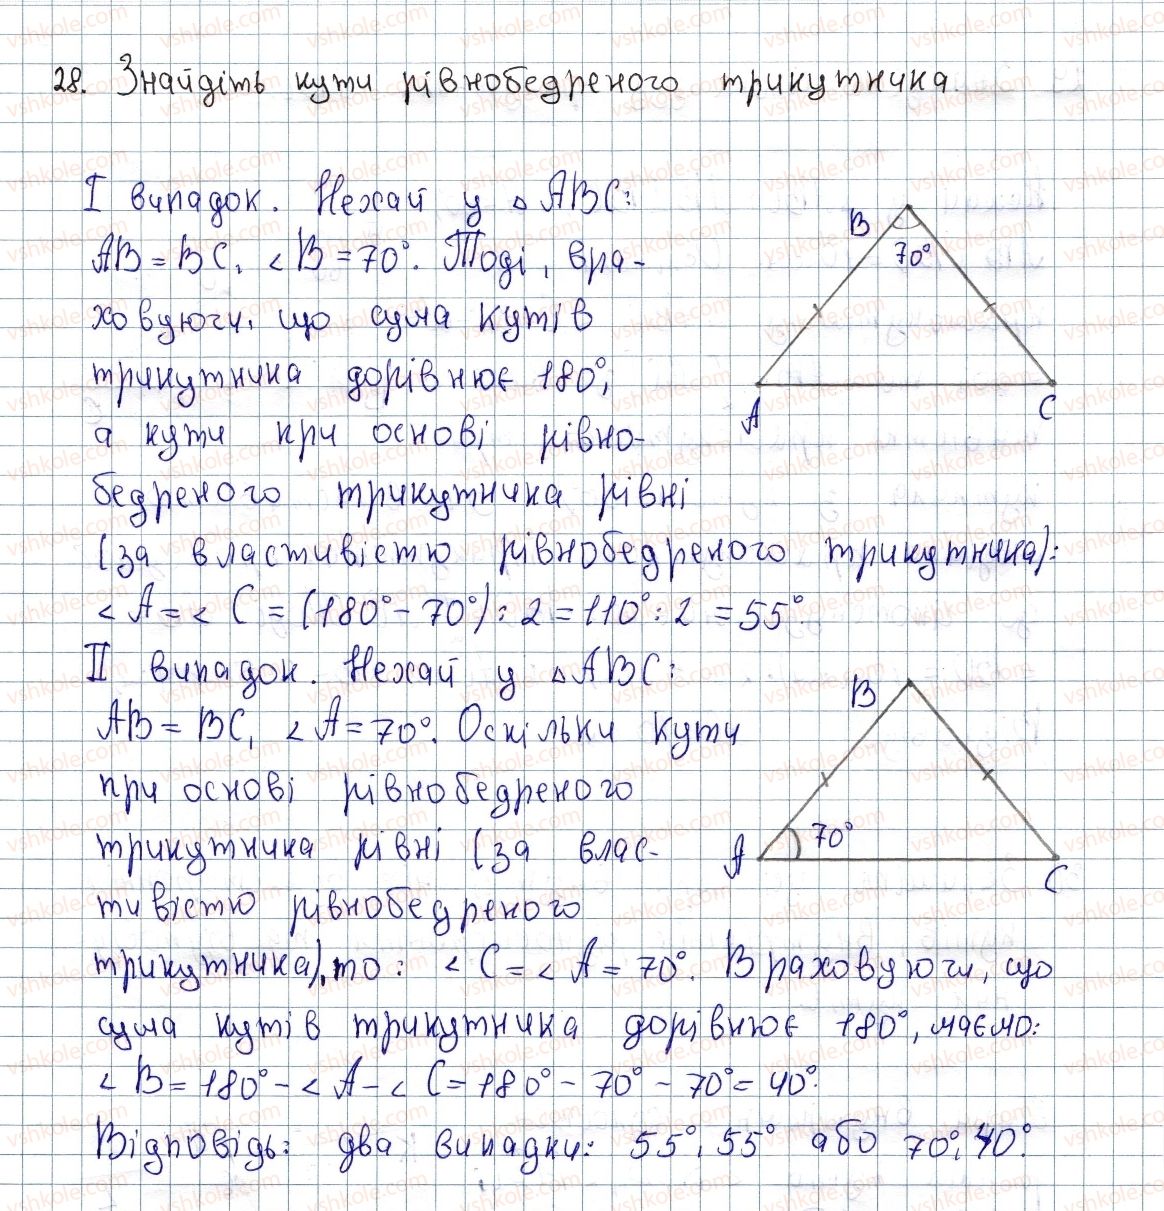 28. Знайдіть кути рівнобедреного трикутника.
I випадок. Нехай у △ABC:
AB = BC, ∠B = 70°. Тоді, вра-
ховуючи, що сума кутів
трикутника дорівнює 180°,
а кути при основі рівно-
бедреного трикутника рівні
(за властивістю рівнобедреного трикутника):
∠A = ∠C = (180° - 70°) : 2 = 110° : 2 = 55°.
B
70°
A
C
II випадок. Нехай у △ABC:
AB = BC, ∠A = 70°. Оскільки кути
при основі рівнобедреного
трикутника рівні (за влас-
тивістю рівнобедреного
трикутника), то: ∠C = ∠A = 70°. Враховуючи, що
сума кутів трикутника дорівнює 180°, маємо:
∠B = 180° - ∠A - ∠C = 180° - 70° - 70° = 40°.
B
70°
A
C
Відповідь: два випадки: 55°, 55° або 70°, 40°.